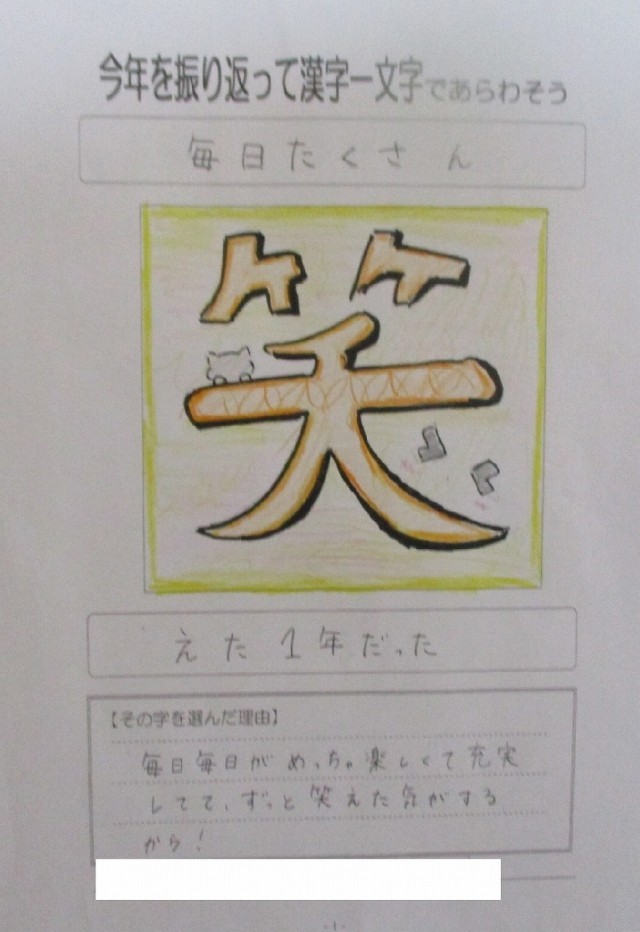 今年を振り返って漢字一文字であらわそう
毎日たくさん
笑
えた1年だった
【その字を選んだ理由】
毎日毎日がめっちゃ楽しくて充実
してて、ずっと笑えた気がする
から!
-1-